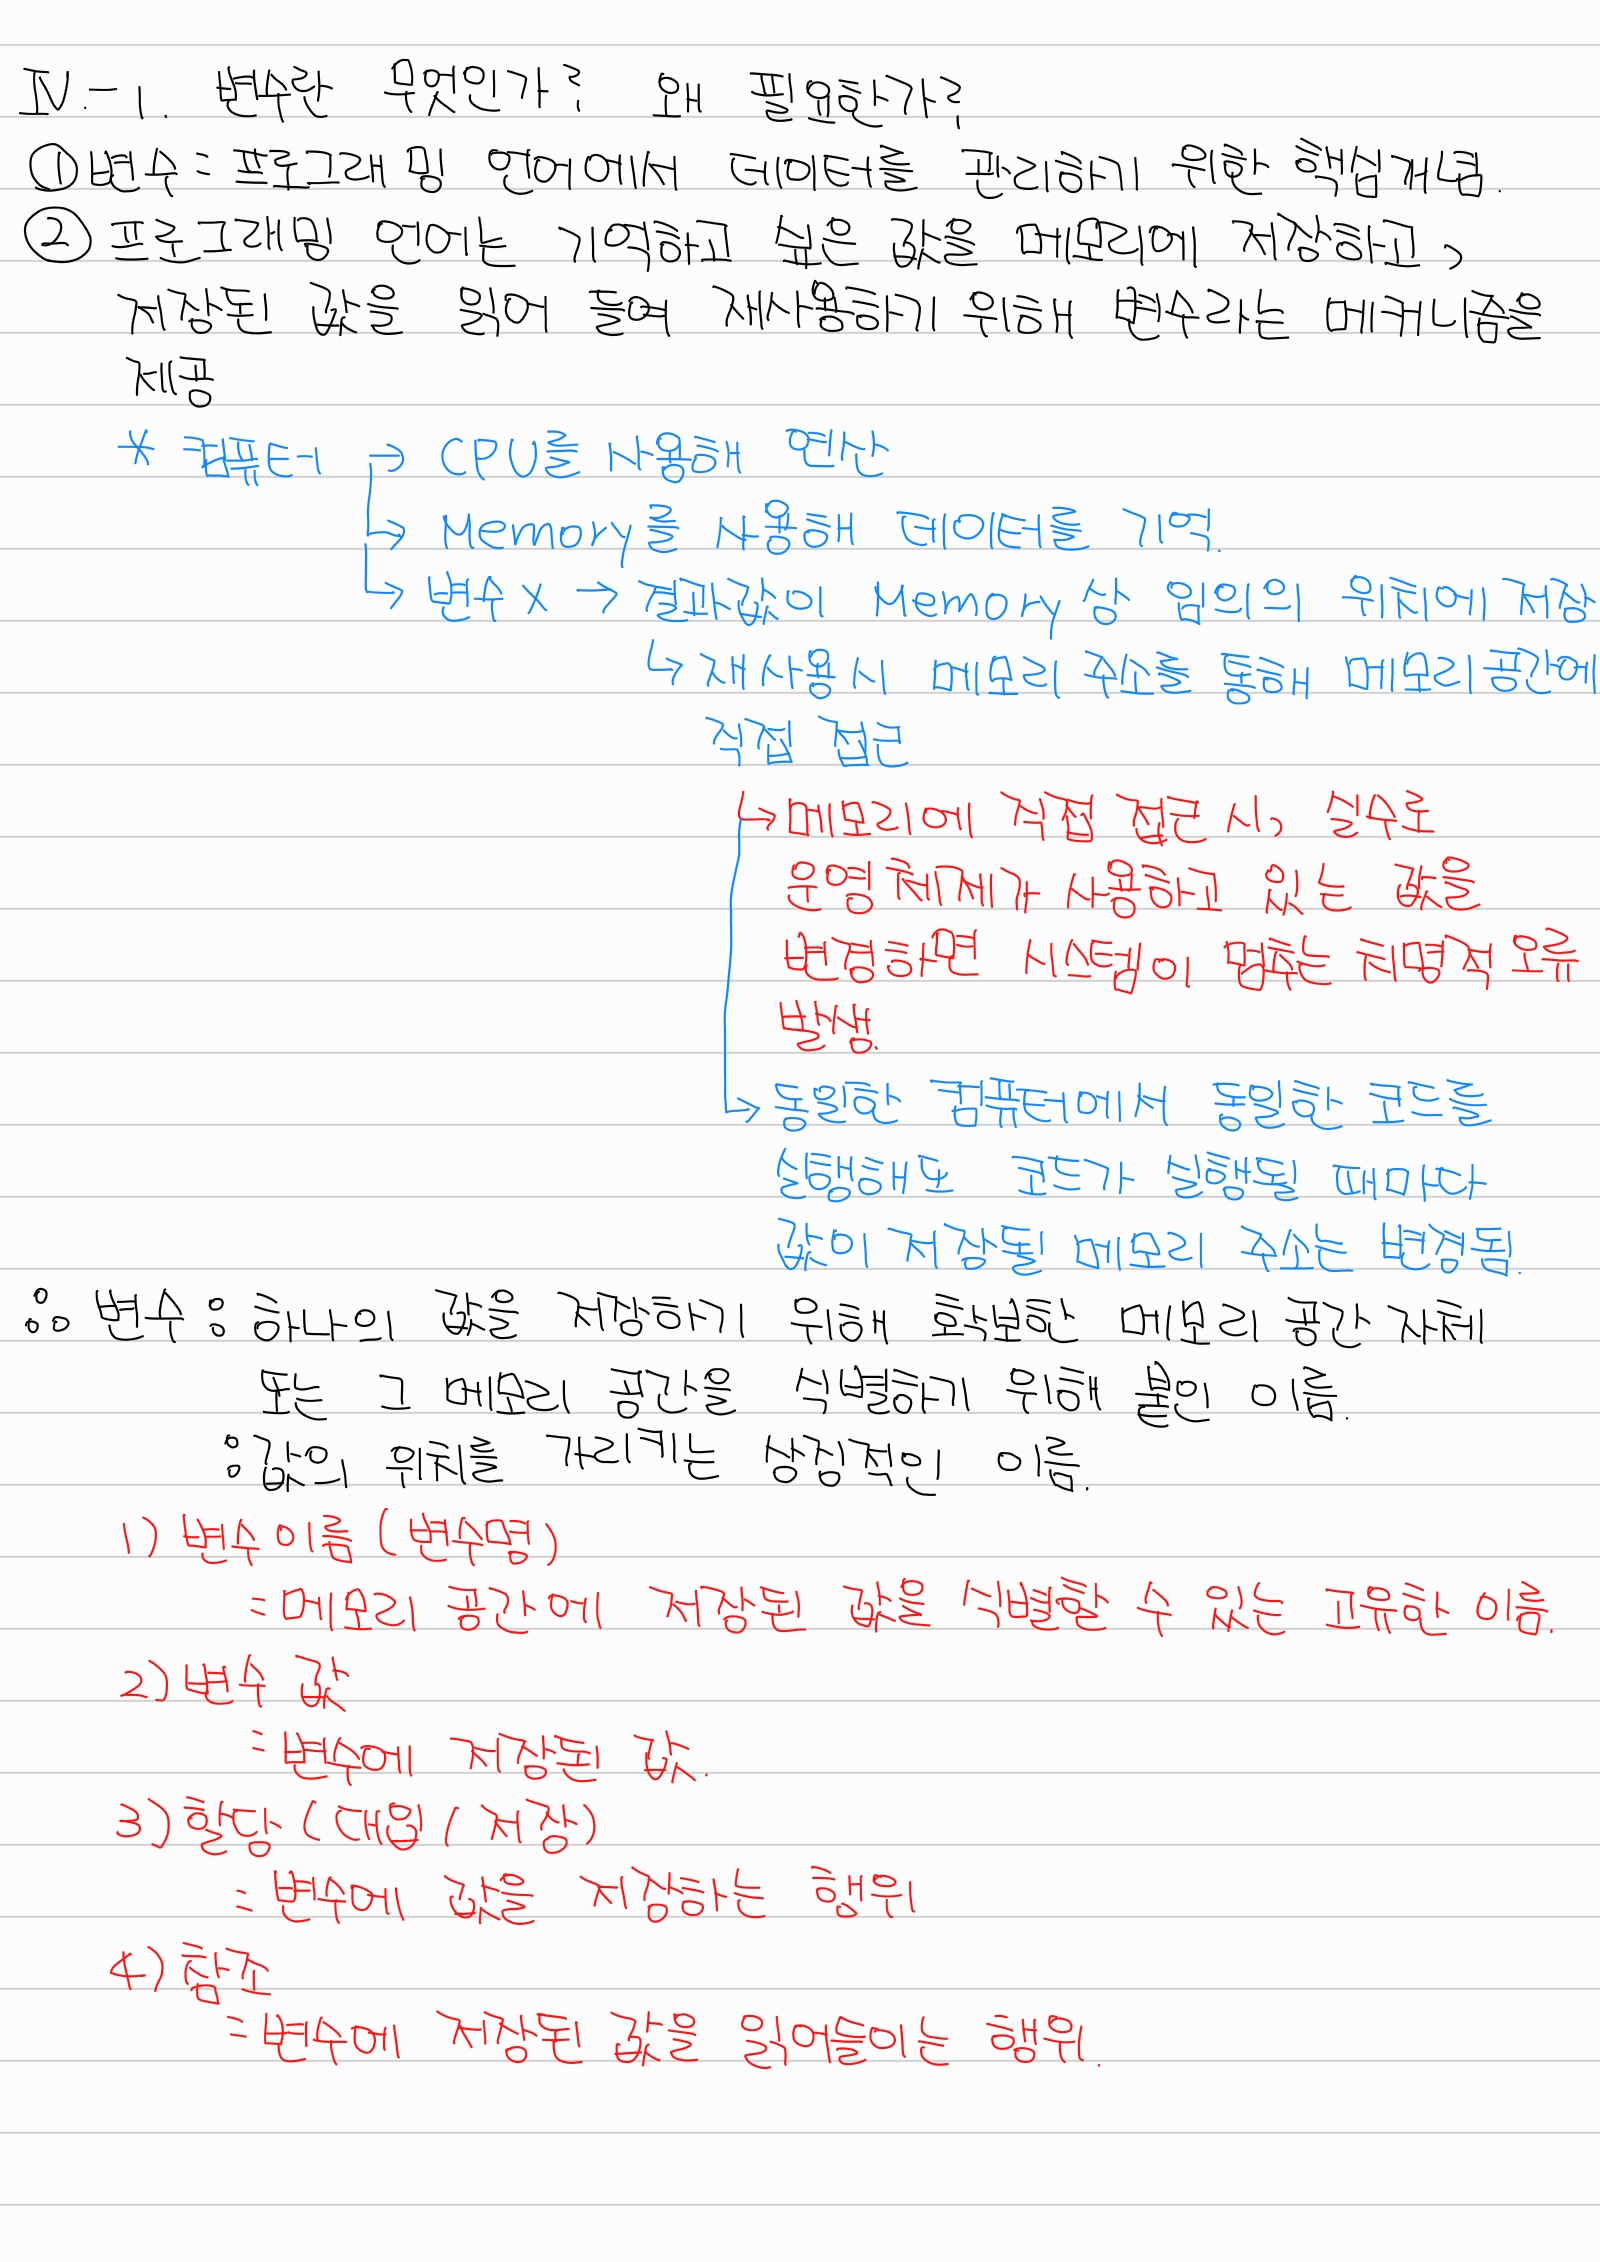 Ⅳ-1. 변수란 무엇인가? 왜 필요한가?
① 변수 = 프로그래밍 언어에서 데이터를 관리하기 위한 핵심개념.
② 프로그래밍 언어는 기억하고 싶은 값을 메모리에 저장하고,
저장된 값을 읽어 들여 재사용하기 위해 변수라는 메커니즘을
제공
* 컴퓨터 → CPU를 사용해 연산
↳ Memory를 사용해 데이터를 기억.
↳ 변수 X → 결과값이 Memory 상 임의의 위치에 저장
↳ 재사용 시 메모리 주소를 통해 메모리 공간에
직접 접근
↳ 메모리에 직접 접근 시, 실수로
운영체제가 사용하고 있는 값을
변경하면 시스템이 멈추는 치명적 오류
발생.
↳ 동일한 컴퓨터에서 동일한 코드를
실행해도 코드가 실행될 때마다
값이 저장될 메모리 주소는 변경됨.
∴ 변수 : 하나의 값을 저장하기 위해 확보한 메모리 공간 자체
또는 그 메모리 공간을 식별하기 위해 붙인 이름.
: 값의 위치를 가리키는 상징적인 이름.
1) 변수 이름 (변수명)
= 메모리 공간에 저장된 값을 식별할 수 있는 고유한 이름.
2) 변수 값
= 변수에 저장된 값.
3) 할당 (대입 / 저장)
= 변수에 값을 저장하는 행위
4) 참조
= 변수에 저장된 값을 읽어들이는 행위.